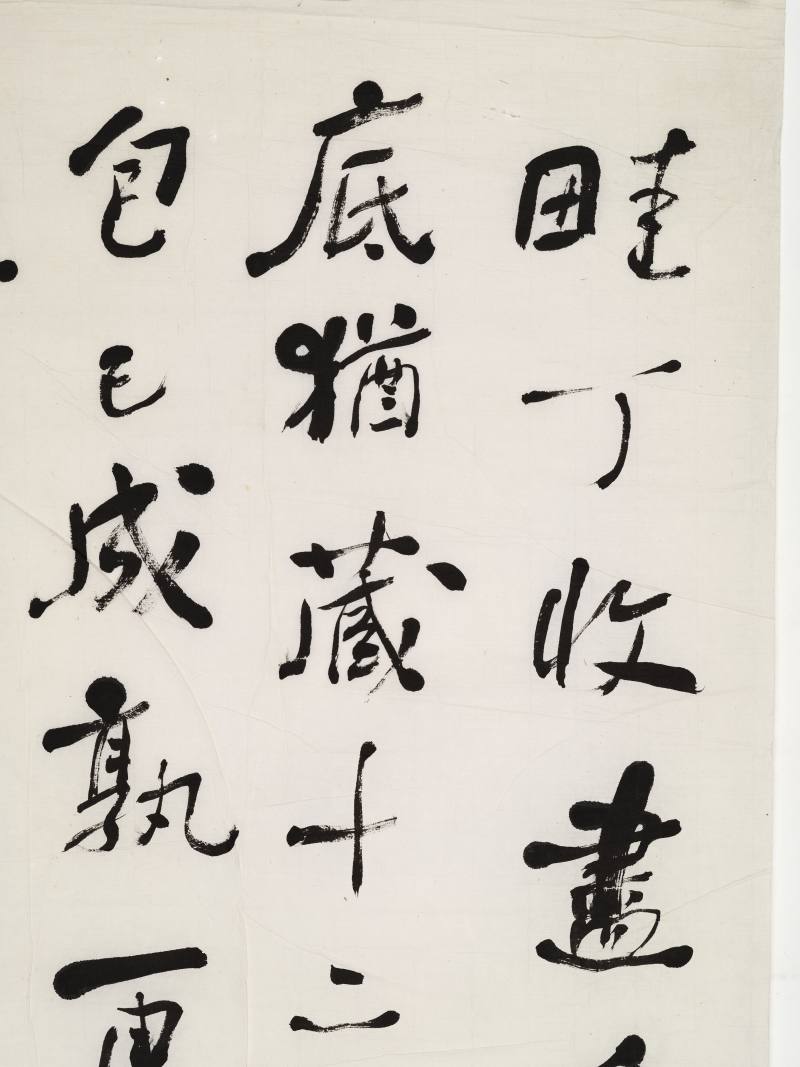 畦丁收盡
底猶藏十二
包已成孰